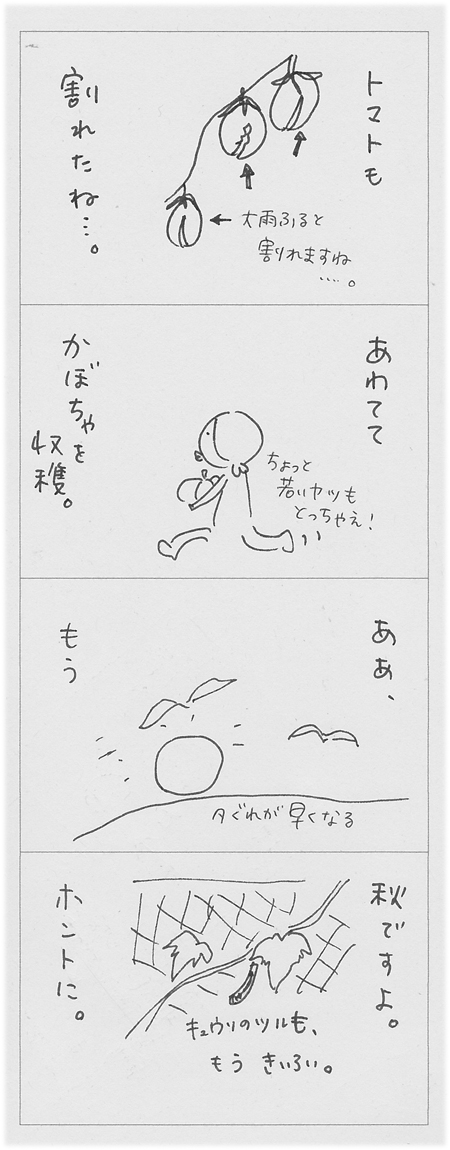 トマトも
割れたね…。
大雨ふると
割れますね
…。
あわてて
かぼちゃを
収穫。
ちょっと
若いヤツも
とっちゃえ!
ああ、
もう
夕ぐれが早くなる
秋ですよ。
ホントに。
キュウリのツルも、
もう きいろい。